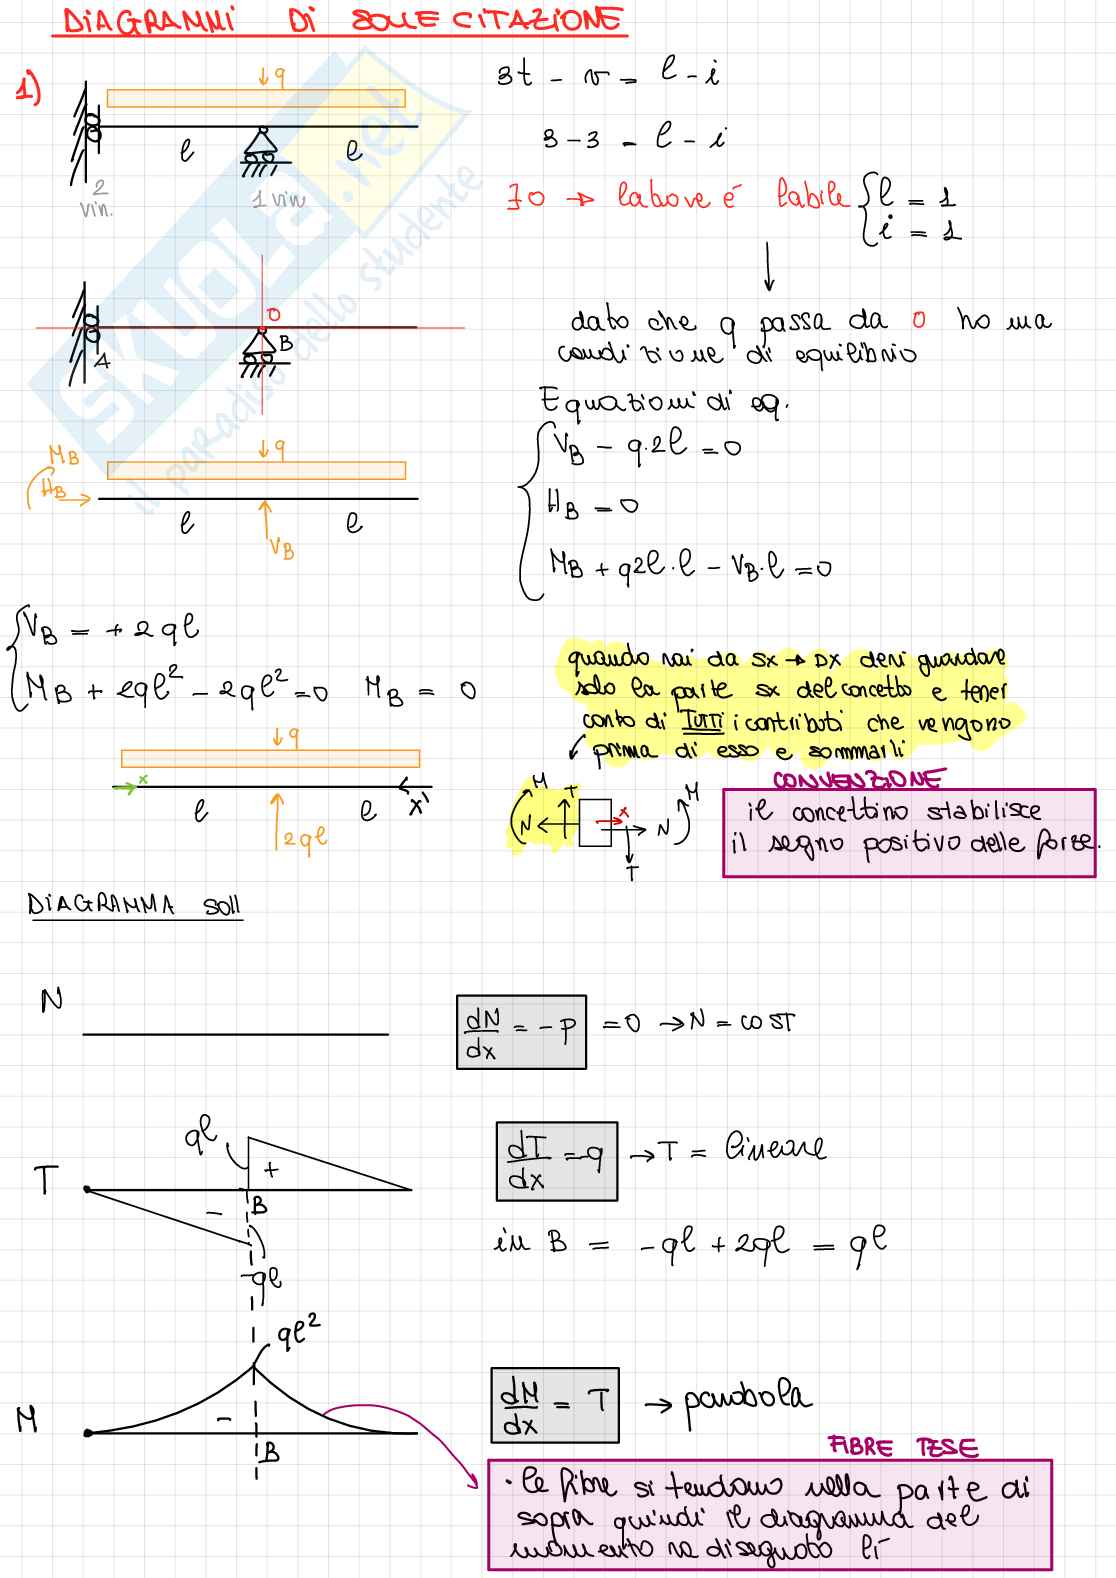 DIAGRAMMI DI SOLLECITAZIONE
1)
↓q
3t - v = l - i
l
l
3-3 = l - i
2
vin.
1 vin
∃0 → labore é labile { l = 1
i = 1
O
A
B
dato che q passa da O ho una
condizione di equilibrio
Equazioni di eq.
MB
↓q
VB - q·2l = 0
HB
HB = 0
l
l
VB
MB + q2l·l - VB·l = 0
VB = + 2ql
MB + 2ql² - 2ql² = 0 MB = 0
quando vai da sx → Dx devi guardare
solo la parte sx del concetto e tener
conto di TUTTI i contributi che vengono
prima di esso e sommarli
↓q
x
l
l
x'
2ql
M
T
N
x
N
M
T
CONVENZIONE
il concettino stabilisce
il segno positivo delle forze.
DIAGRAMMA soll
N
dN/dx = -p = 0 → N = COST
T
ql
+
B
-
-ql
dT/dx = -q → T = lineare
in B = -ql + 2ql = ql
ql²
M
-
B
dM/dx = T → parabola
FIBRE TESE
· le fibre si tendono nella parte di
sopra quindi il diagramma del
momento va disegnato lí
SKUOLA.net
il paradiso dello studente